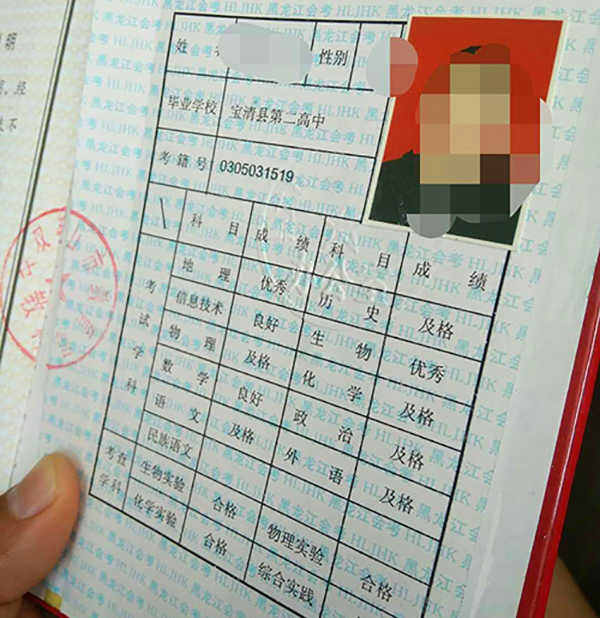 姓 性别
毕业学校 宝清县第二高中
考籍号 0305031519
科目 成绩 科目 成绩
考试学科
地理 优秀 历史 及格
信息技术 良好 生物 优秀
物理 及格 化学 及格
数学 良好 政治 及格
语文 及格 外语 及格
民族语文
考查学科
生物实验 合格 物理实验 合格
化学实验 合格 综合实践
黑龙江会考 HLJHK